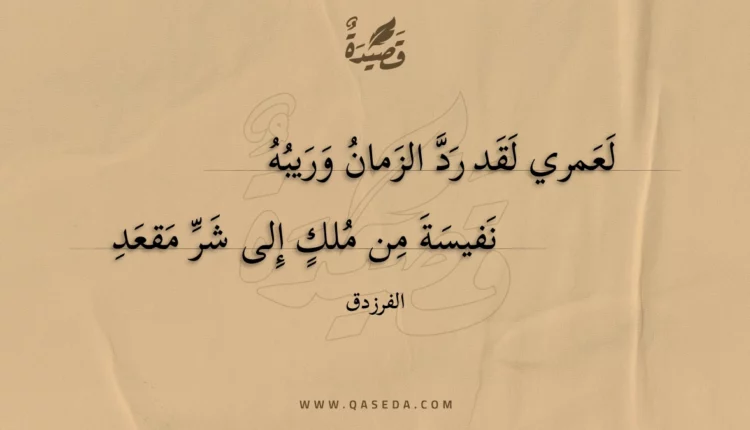 قَصِيدَةٌ
لَعَمري لَقَد رَدَّ الزَمانُ وَرَيبُهُ
نَفيسَةَ مِن مُلكٍ إِلى شَرِّ مَقعَدِ
الفرزدق
WWW.QASEDA.COM